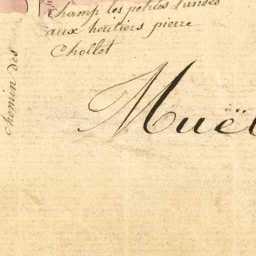 champ les petites
aux heritiers pierre
Chollet
chemin des
Muël